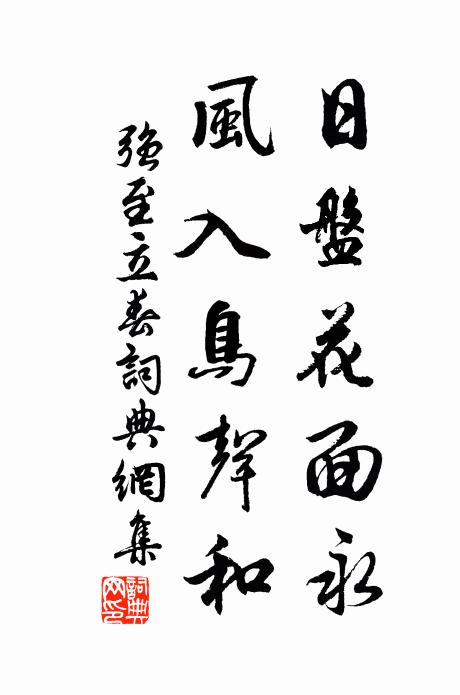 日盤花面永
風入鳥聲和
強至立春詞典網集
詞典網印